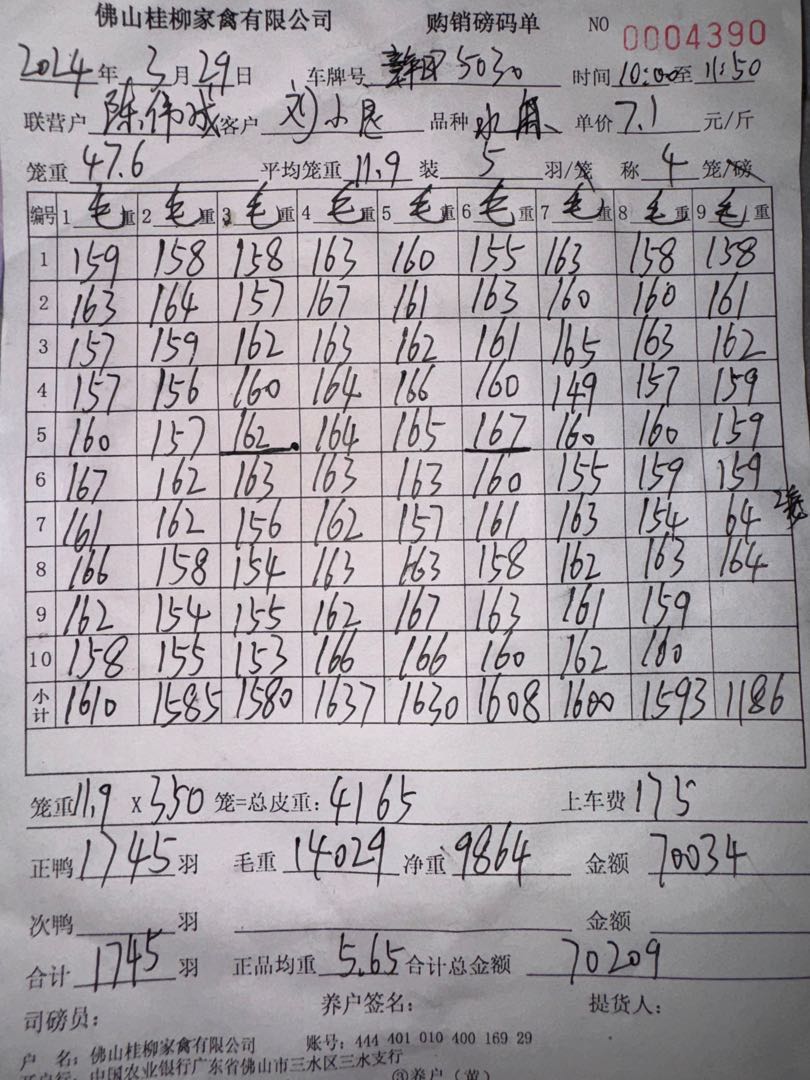 佛山桂柳家禽有限公司 购销磅码单 NO 0004390
2024年 3月 29日 车牌号 5030 时间 10:00 至 11:50
联营户 陈伟成 客户 刘小 品种 水 单价 7.1 元/斤
笼重 47.6 平均笼重 11.9 装 5 羽/笼 称 4 笼/磅
编号 1 毛 重 2 毛 重 3 毛 重 4 毛 重 5 毛 重 6 毛 重 7 毛 重 8 毛 重 9 毛 重
1 159 158 158 163 160 155 163 158 158
2 163 164 157 167 161 163 160 160 161
3 157 159 162 163 162 161 165 163 162
4 157 156 160 164 166 160 149 157 159
5 160 157 162 164 165 167 160 160 159
6 167 162 163 163 163 160 155 159 159
7 161 162 156 162 157 161 163 154 64
8 166 158 154 163 163 158 162 163 164
9 162 154 155 162 167 163 161 159
10 158 155 153 166 166 160 162 160
小计 1610 1585 1580 1637 1630 1608 1600 1593 1186
笼重 11.9 X 350 笼=总皮重: 4165 上车费 175
正鸭 1745 羽 毛重 14029 净重 9864 金额 70034
次鸭 羽 金额
合计 1745 羽 正品均重 5.65 合计总金额 70209
司磅员: 养户签名: 提货人:
户 名: 佛山桂柳家禽有限公司 账号: 444 401 010 400 169 29
开户行: 中国农业银行广东省佛山市三水区三水支行
③养户(黄)